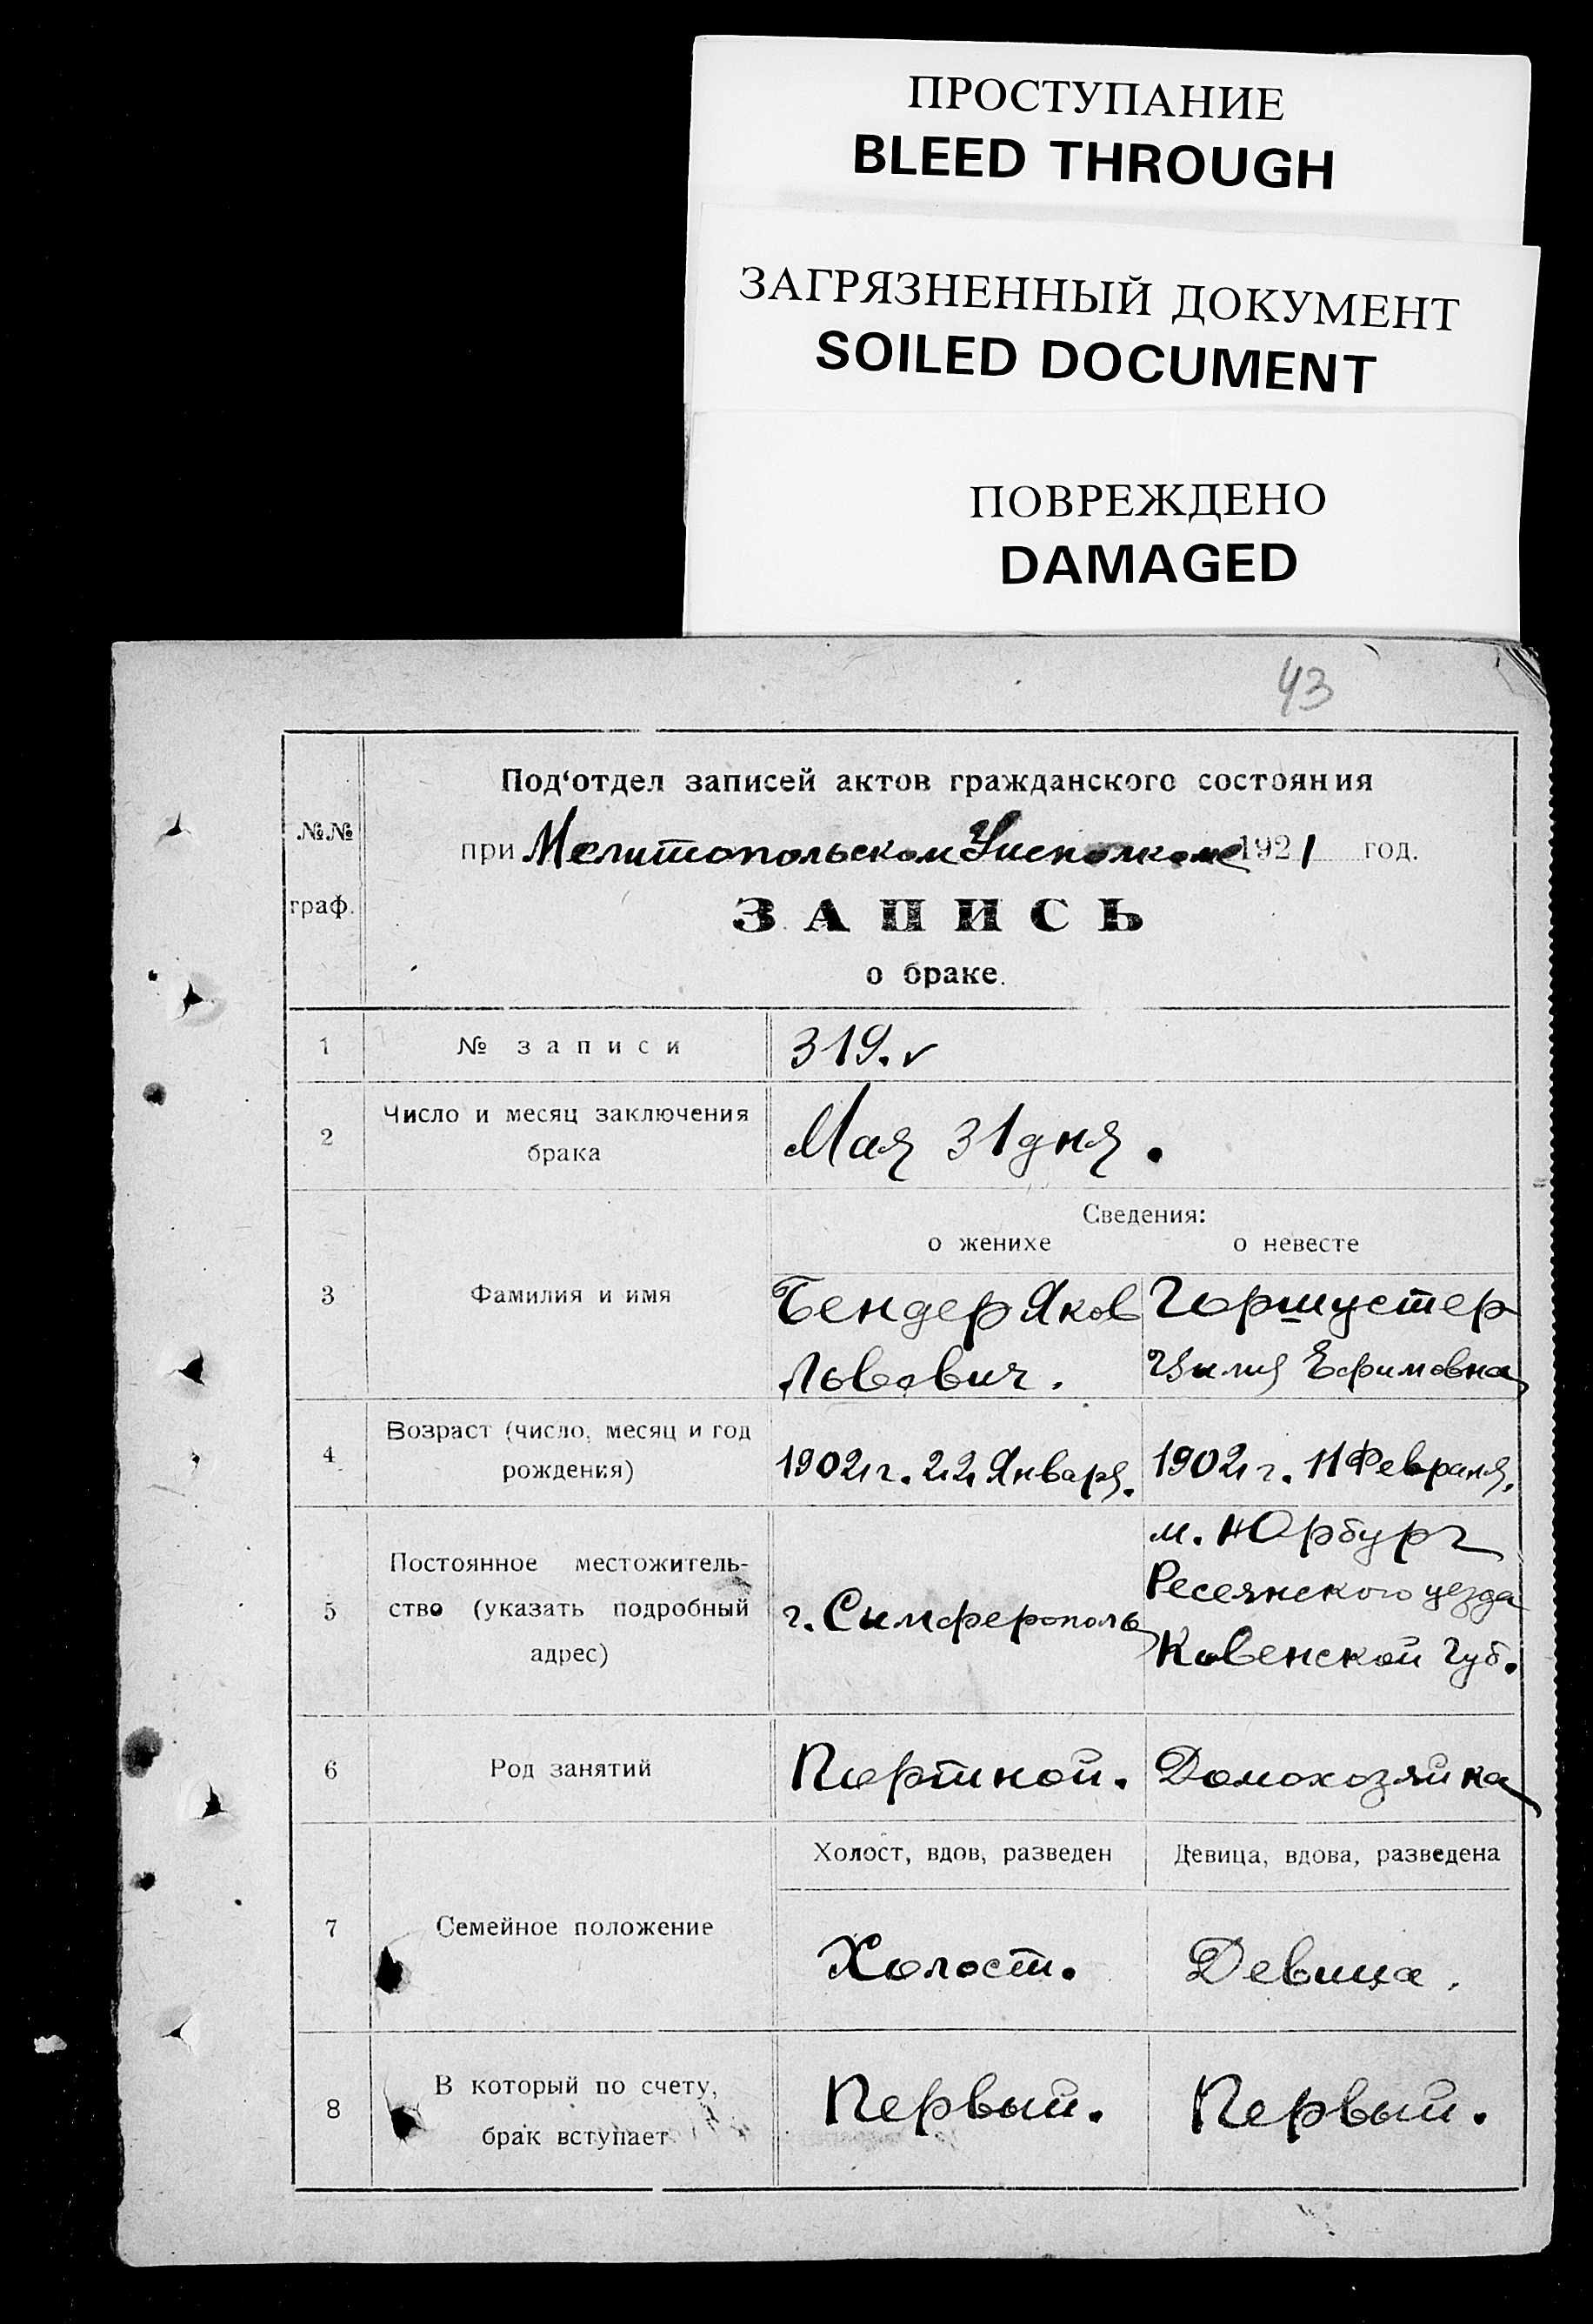 ПРОСТУПАНИЕ
BLEED THROUGH
ЗАГРЯЗНЕННЫЙ ДОКУМЕНТ
SOILED DOCUMENT
ПОВРЕЖДЕНО
DAMAGED
43
Под‘отдел записей актов гражданского состояния
№№ при Мелитопольском Уисполкоме 1921 год.
граф. ЗАПИСЬ
о браке.
1 № записи 319. v
2 Число и месяц заключения брака Мая 31 дня.
Сведения:
о женихе о невесте
3 Фамилия и имя Бендер Яков Горшустер
Львович. Цилия Ефимовна
4 Возраст (число, месяц и год рождения) 1902 г. 22 Января. 1902 г. 11 Февраля.
м. Юрбург
5 Постоянное местожитель-
ство (указать подробный г. Симферополь Ресеянского уезда
адрес) Ковенской губ.
6 Род занятий Портной. Домохозяйка
Холост, вдов, разведен Девица, вдова, разведена
7 Семейное положение Холост. Девица.
8 В который по счету, Первый. Первый.
брак вступает